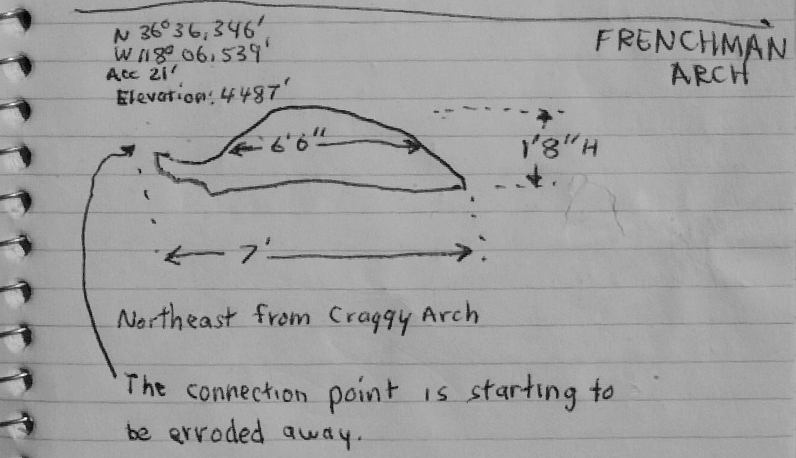 N 36° 36,346'
W 118° 06,539'
Acc 21'
Elevation: 4487'
FRENCHMAN
ARCH
6'6"
1'8" H
7'
Northeast from Craggy Arch
The connection point is starting to
be erroded away.